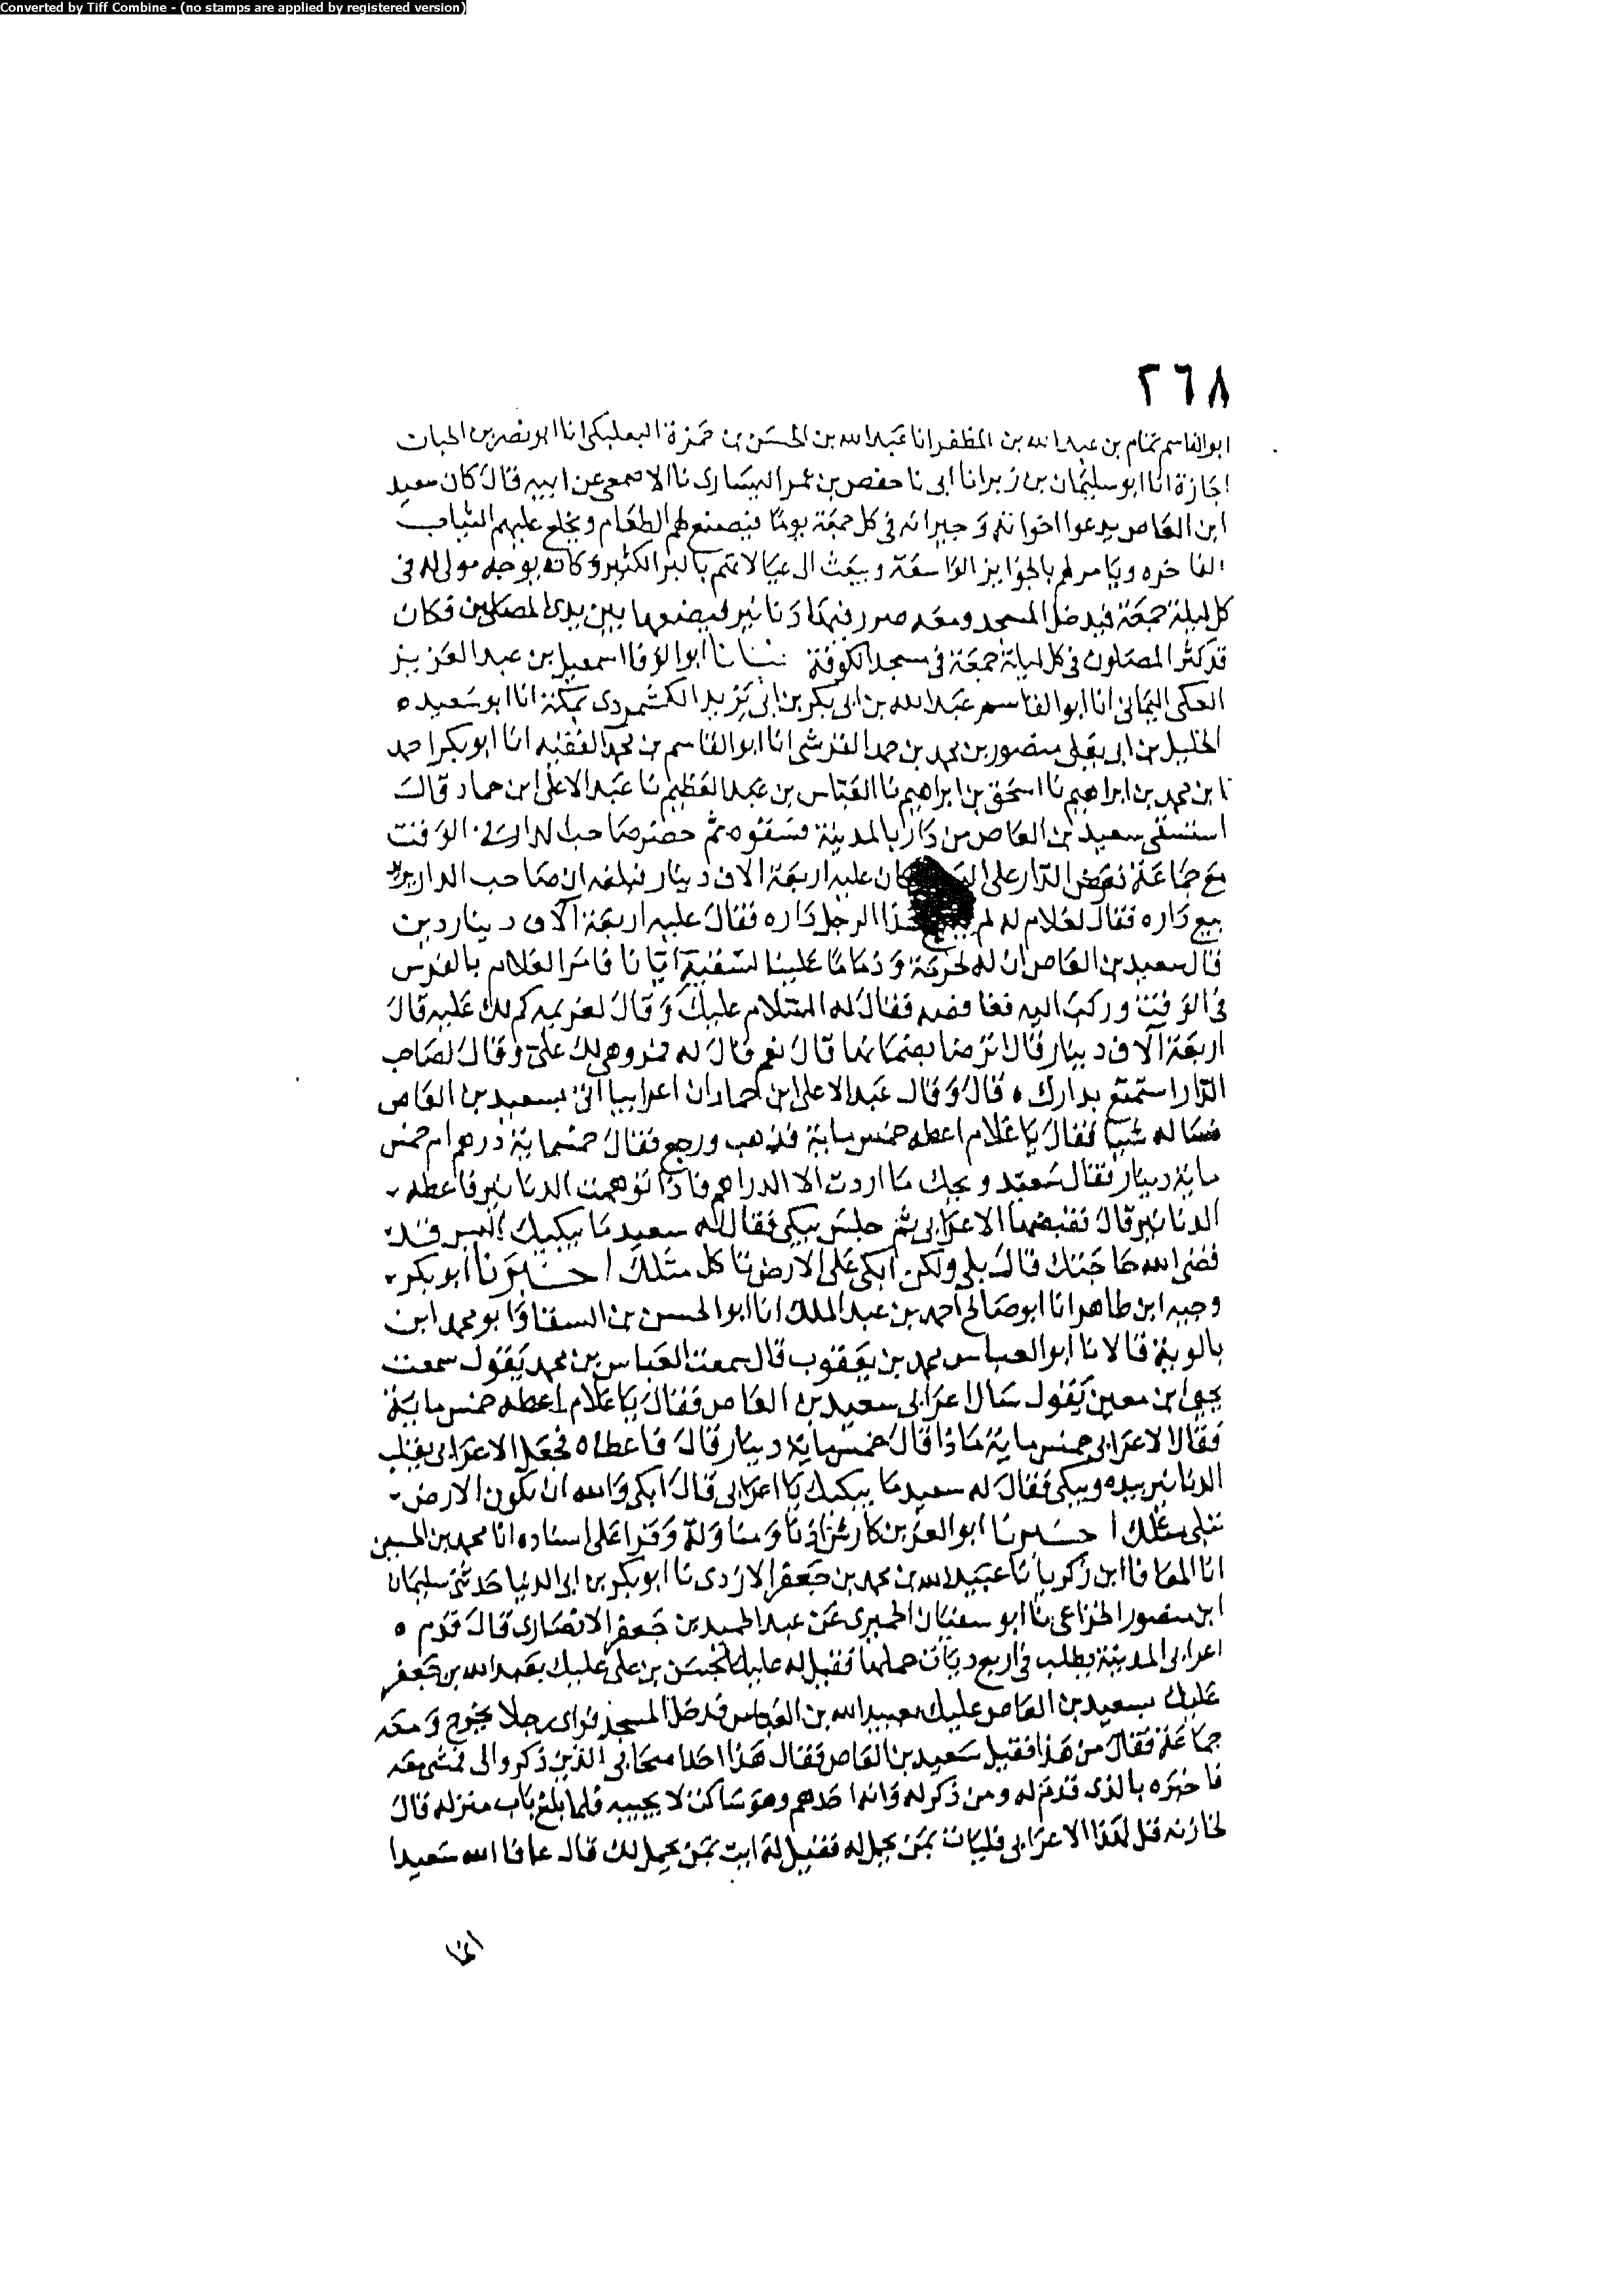 Converted by Tiff Combine - (no stamps are applied by registered version)
٢٦٨
ابو القاسم تمام بن عبد الله بن المظفر انا عبد الله بن الحسن بن حمزة البعلبكي انا ابو نصر بن الحبان
اجازة انا ابو سليمان بن زبر انا ابى نا حفص بن عمر السيارى نا الاصمعى عن ابيه قال كان سعيد
ابن العاص يدعوا اخوانه وجيرانه فى كل جمعة يومًا فيصنع لهم الطعام ويخلع عليهم الثياب
الفاخره ويامر لهم بالجوايز الواسعة ويبعث الى عيالاتهم بالبر الكثير وكان يوجه مولى له فى
كل ليلة جمعة فيدخل المسجد ومعه صرر فيها دنانير فيضعها بين يدى المصلين فكان
قد كثر المصلون فى كل ليلة جمعة فى مسجد الكوفة انبانا ابو الوفا اسمعيل بن عبد العزيز
العكى اليمانى انا ابو القاسم عبد الله بن ابى بكر بن ابى يزيد الكشمردى بمكة انا ابو سعيد ه
الخليل بن ابى يعلى منصور بن محمد بن حمد القرشى انا ابو القاسم بن محمد الفقيه انا ابو بكر احمد
ابن محمد بن ابراهيم نا اسحق بن ابراهيم نا العباس بن عبد العظيم نا عبد الاعلى ابن حماد قال
استسقى سعيد بن العاص من دار بالمدينة فسقوه ثم حضر صاحب الدار فى الوقت
مع جماعة نعرض الدار على كان عليه اربعة الاف دينار فبلغه ان صاحب الدار يريد
بيع داره فقال لغلام له لم هذا الرجل داره فقال عليه اربعة آلاف دينار دين
قال سعيد بن العاص ان له لحرمة وذمامًا علينا لسقيه ايانا فامر الغلام بالفرس
فى الوقت وركب اليه فقال له السلام عليك وقال لغريمه كم لك عليه قال
اربعة آلاف دينار قال ترضا بضمانها قال نعم قال له فهى لك على وقال لصاحب
الدار استمتع بدارك ه قال وقال عبد الاعلى ابن حماد ان اعرابيا اتى سعيد بن العاص
فساله شيا فقال يا غلام اعطه خمس ماية فذهب ورجع فقال خمسماية درهم ام خمس
ماية دينار فقال سعيد ويحك ما اردت الا الدراهم فاذا توهمت الدنانير فاعطه
الدنانير قال فقبضها الاعرابى ثم جلس يبكى فقال له سعيد ما يبكيك اليس قد
قضى الله حاجتك قال بلى ولكن ابكى على الارض تاكل مثلك اخبرنا ابو بكر
وجيه ابن طاهر انا ابو صالح احمد بن عبد الملك انا ابو الحسن بن السقا وابو محمد ابن
بالوية قالا نا ابو العباس محمد بن يعقوب قال سمعت العباس بن محمد يقول سمعت
يحيى ابن معين يقول سال اعرابى سعيد بن العاص فقال يا غلام اعطه خمس ماية
فقال الاعرابى خمس ماية ماذا قال خمس ماية دينار قال فاعطاه فجعل الاعرابى يقلب
الدنانير بيده ويبكى فقال له سعيد ما يبكيك يا اعرابى قال ابكى والله ان تكون الارض
تبلى مثلك اخبرنا ابو العز بن كادش اذنا ومناولة وقرا على اسناده انا محمد بن الحسين
انا المعافا ابن زكريا نا عبيد الله بن محمد بن جعفر الازدى نا ابو بكر بن ابى الدنيا حدثنى سليمان
ابن منصور الخزاعى نا ابو سفيان الحميرى عن عبد الحميد بن جعفر الانصارى قال قدم ه
اعرابى المدينة يطلب فى اربع ديات حملها فقيل له عليك بالحسن بن على عليك بعبد الله بن جعفر
عليك بسعيد بن العاص عليك بعبيد الله بن العباس فدخل المسجد فراى رجلا يخرج ومعه
جماعة فقال من هذا فقيل سعيد بن العاص فقال هذا احد اصحابى الذين ذكروا لى فمشى معه
فاخبره بالذى قدم له ومن ذكر له وانه احدهم وهو ساكت لا يجيبه فلما بلغ باب منزله قال
لخازنه قل لهذا الاعرابى فليات بمن يحمل له فقيل له ايت بمن يحمل لك قال عافا الله سعيدا
انما